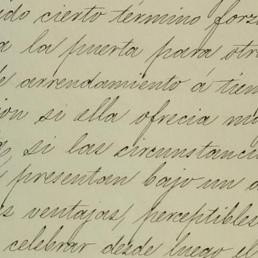 ido cierto término forz
a la puerta para otr
e arrendamiento á tiem
ion si ella ofrecia m
si las circunstanci
presentan bajo un
s ventajas perceptibles
celebrar desde luego el